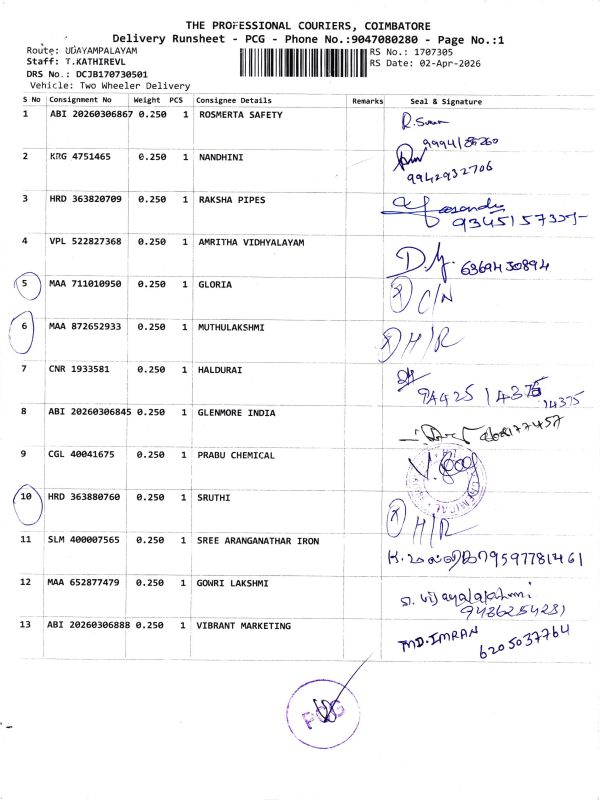 THE PROFESSIONAL COURIERS, COIMBATORE
Delivery Runsheet - PCG - Phone No.:9047080280 - Page No.:1
Route: UDAYAMPALAYAM
RS No.: 1707305
Staff: T.KATHIREVL
RS Date: 02-Apr-2026
DRS No.: DCJB170730501
Vehicle: Two Wheeler Delivery
S No Consignment No Weight PCS Consignee Details Remarks Seal & Signature
1 ABI 20260306867 0.250 1 ROSMERTA SAFETY
2 KRG 4751465 0.250 1 NANDHINI
9942932706
3 HRD 363820709 0.250 1 RAKSHA PIPES
4 VPL 522827368 0.250 1 AMRITHA VIDHYALAYAM
6369430894
5 MAA 711010950 0.250 1 GLORIA C/N
6 MAA 872652933 0.250 1 MUTHULAKSHMI H/R
7 CNR 1933581 0.250 1 HALDURAI
94425 14375
14375
8 ABI 20260306845 0.250 1 GLENMORE INDIA
9 CGL 40041675 0.250 1 PRABU CHEMICAL
10 HRD 363880760 0.250 1 SRUTHI H/R
11 SLM 400007565 0.250 1 SREE ARANGANATHAR IRON
9597781461
12 MAA 652877479 0.250 1 GOWRI LAKSHMI
13 ABI 20260306888 0.250 1 VIBRANT MARKETING MD.IMRAN
6205037764
PCG